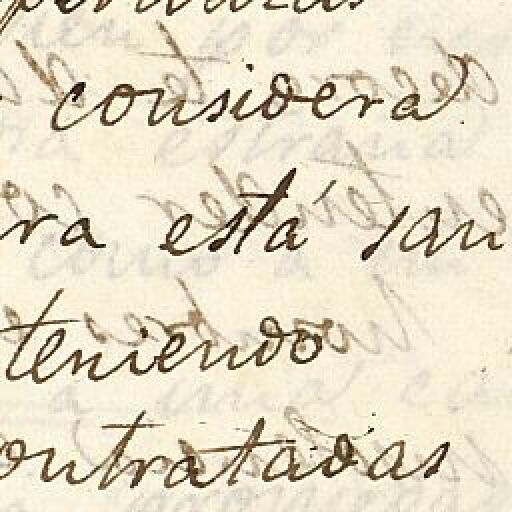 considera
ra está san
teniendo
ontratadas